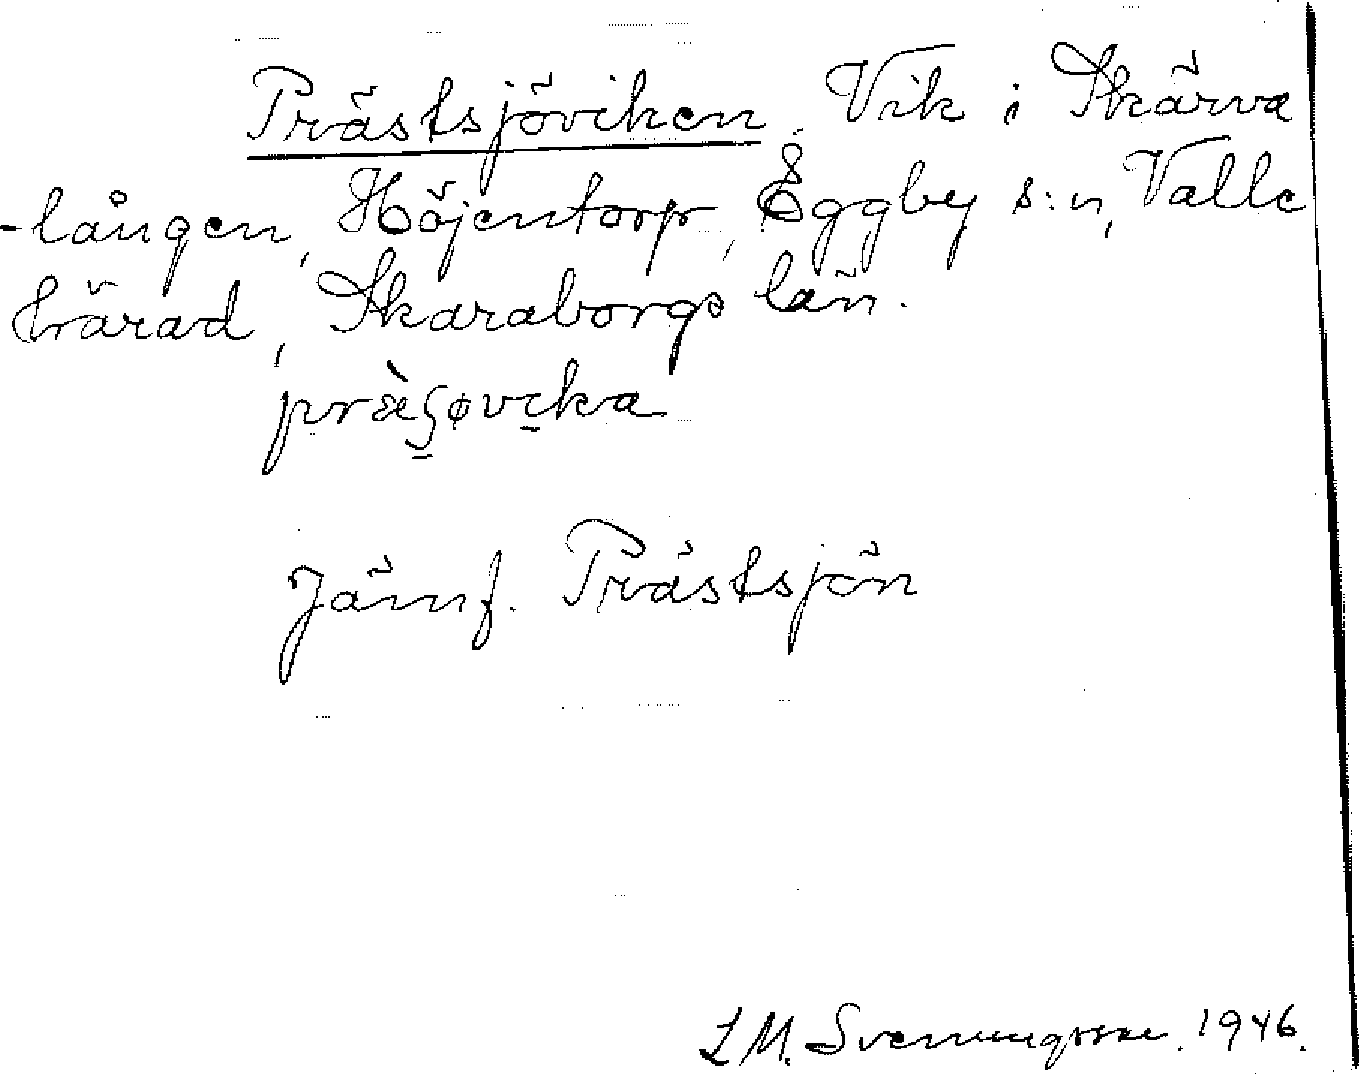 Prästsjöviken. Vik i Skärva
-lången, Höjentorp, Eggby s:n, Valle
härad, Skaraborgs län.
præ̀ʂøvika
Jämf. Prästsjön
L M. Svenungsson. 1946.